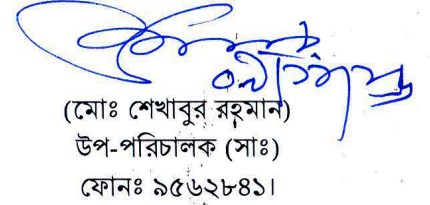 (মোঃ শেখাবুর রহমান)
উপ-পরিচালক (সাঃ)
ফোনঃ ৯৫৬২৮৪১।